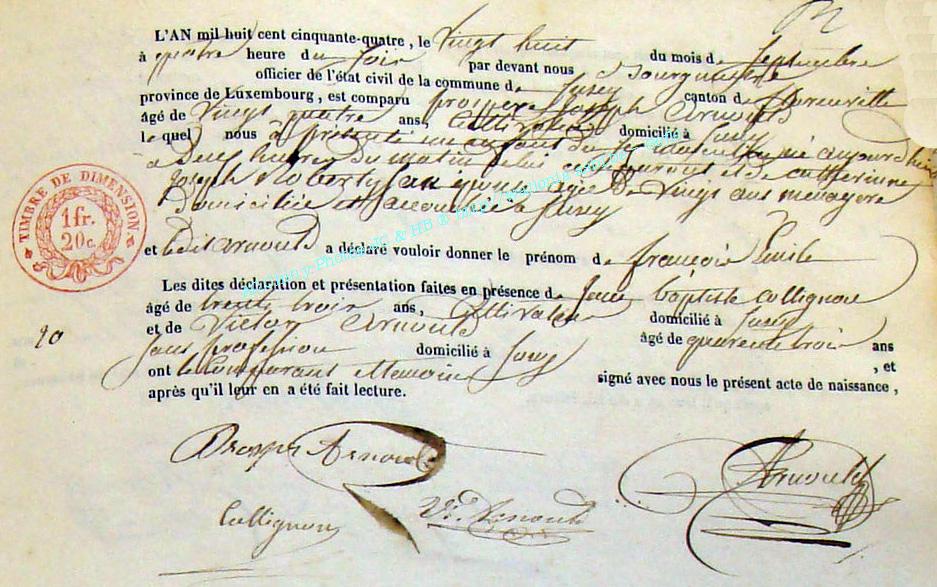 L'AN mil huit cent cinquante-quatre, le Vingt huit du mois de Septembre
à quatre heure du soir par devant nous Bourgmestre
officier de l'état civil de la commune de Jusey canton de Florenville
province de Luxembourg, est comparu prosper Joseph Arnould
âgé de Vingt quatre ans, Cultivateur domicilié à Jusey
le quel nous à présenté un enfant du sexe masculin né aujourd'hui
à Deux heures du matin de lui comparant et de catherinne
Joseph son épouse agée de Vingt ans menagere
Domiciliée et accouchée à Jusey
et ledit arnould a déclaré vouloir donner le prénom de françois Emile
Les dites déclaration et présentation faites en présence de Jean baptiste collignon
âgé de trente trois ans, Cultivateur domicilié à Jusey
et de Victor Arnould âgé de quarente trois ans
sans profession domicilié à Jusey , et
ont le comparant et temoins signé avec nous le présent acte de naissance,
après qu'il leur en a été fait lecture.
TIMBRE DE DIMENSION
1 fr.
20 c.
90
Prosper Arnould
Arnould
Collignon
Vr. Arnould